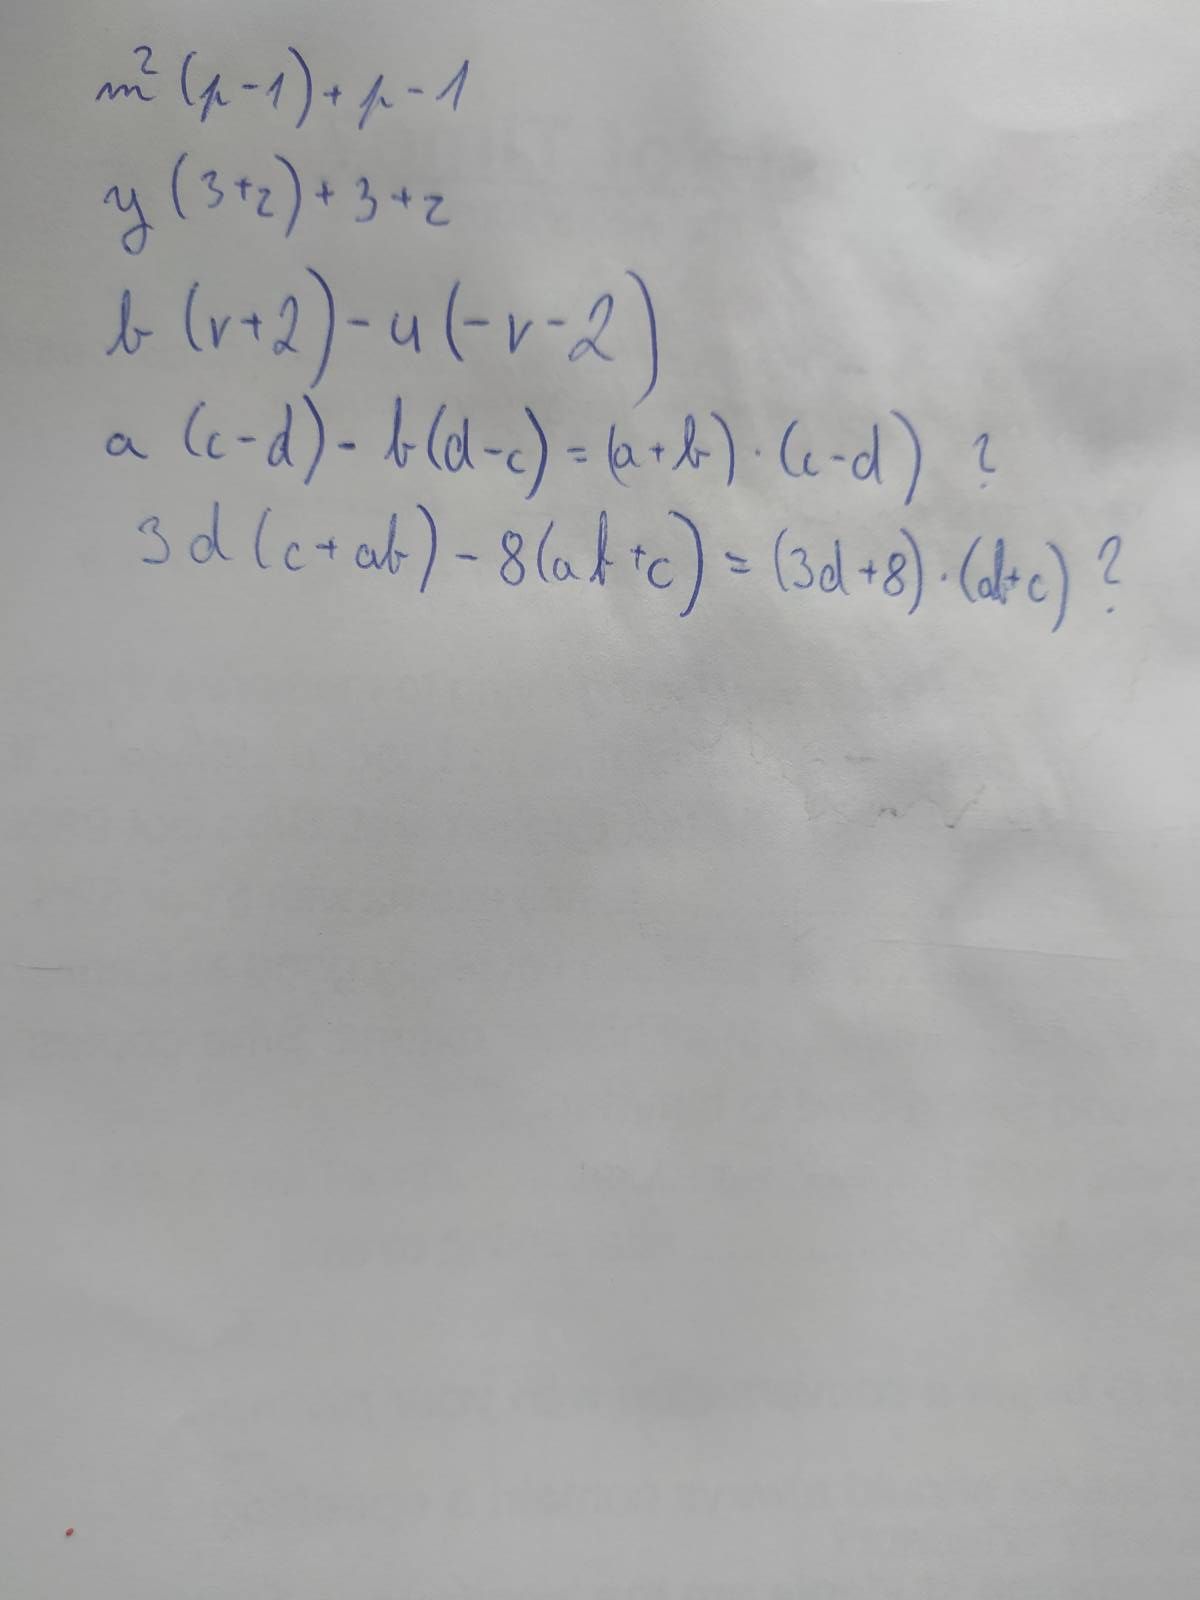 m²(p-1)+p-1
y(3+z)+3+z
b(v+2)-u(-v-2)
a(c-d)-b(d-c)=(a+b)·(c-d) ?
3d(c+ab)-8(ab+c)=(3d+8)·(ab+c) ?